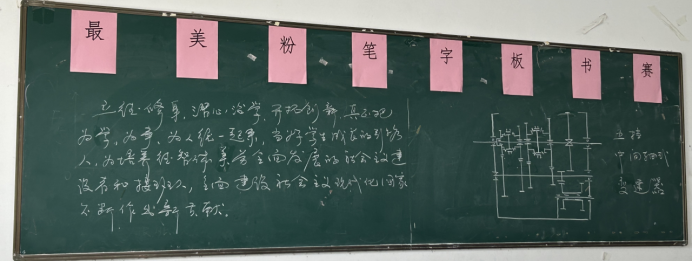 最美粉笔字板书赛
立德修身，潜心治学，开拓创新，真正把
为学、为事、为人统一起来，当好学生成长的引路
人，为培养德智体美劳全面发展的社会主义建
设者和接班人，全面建设社会主义现代化国家
不断作出新贡献。
五档
中间轴式
变速器